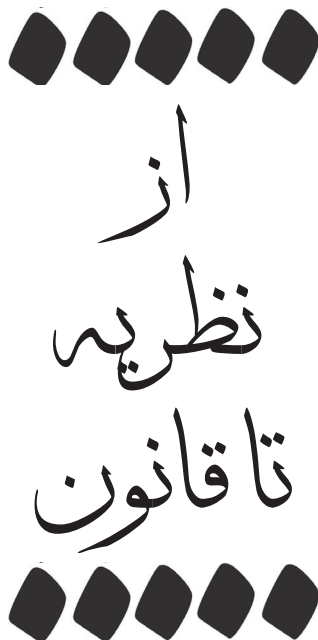 از
نظریه
تا قانون